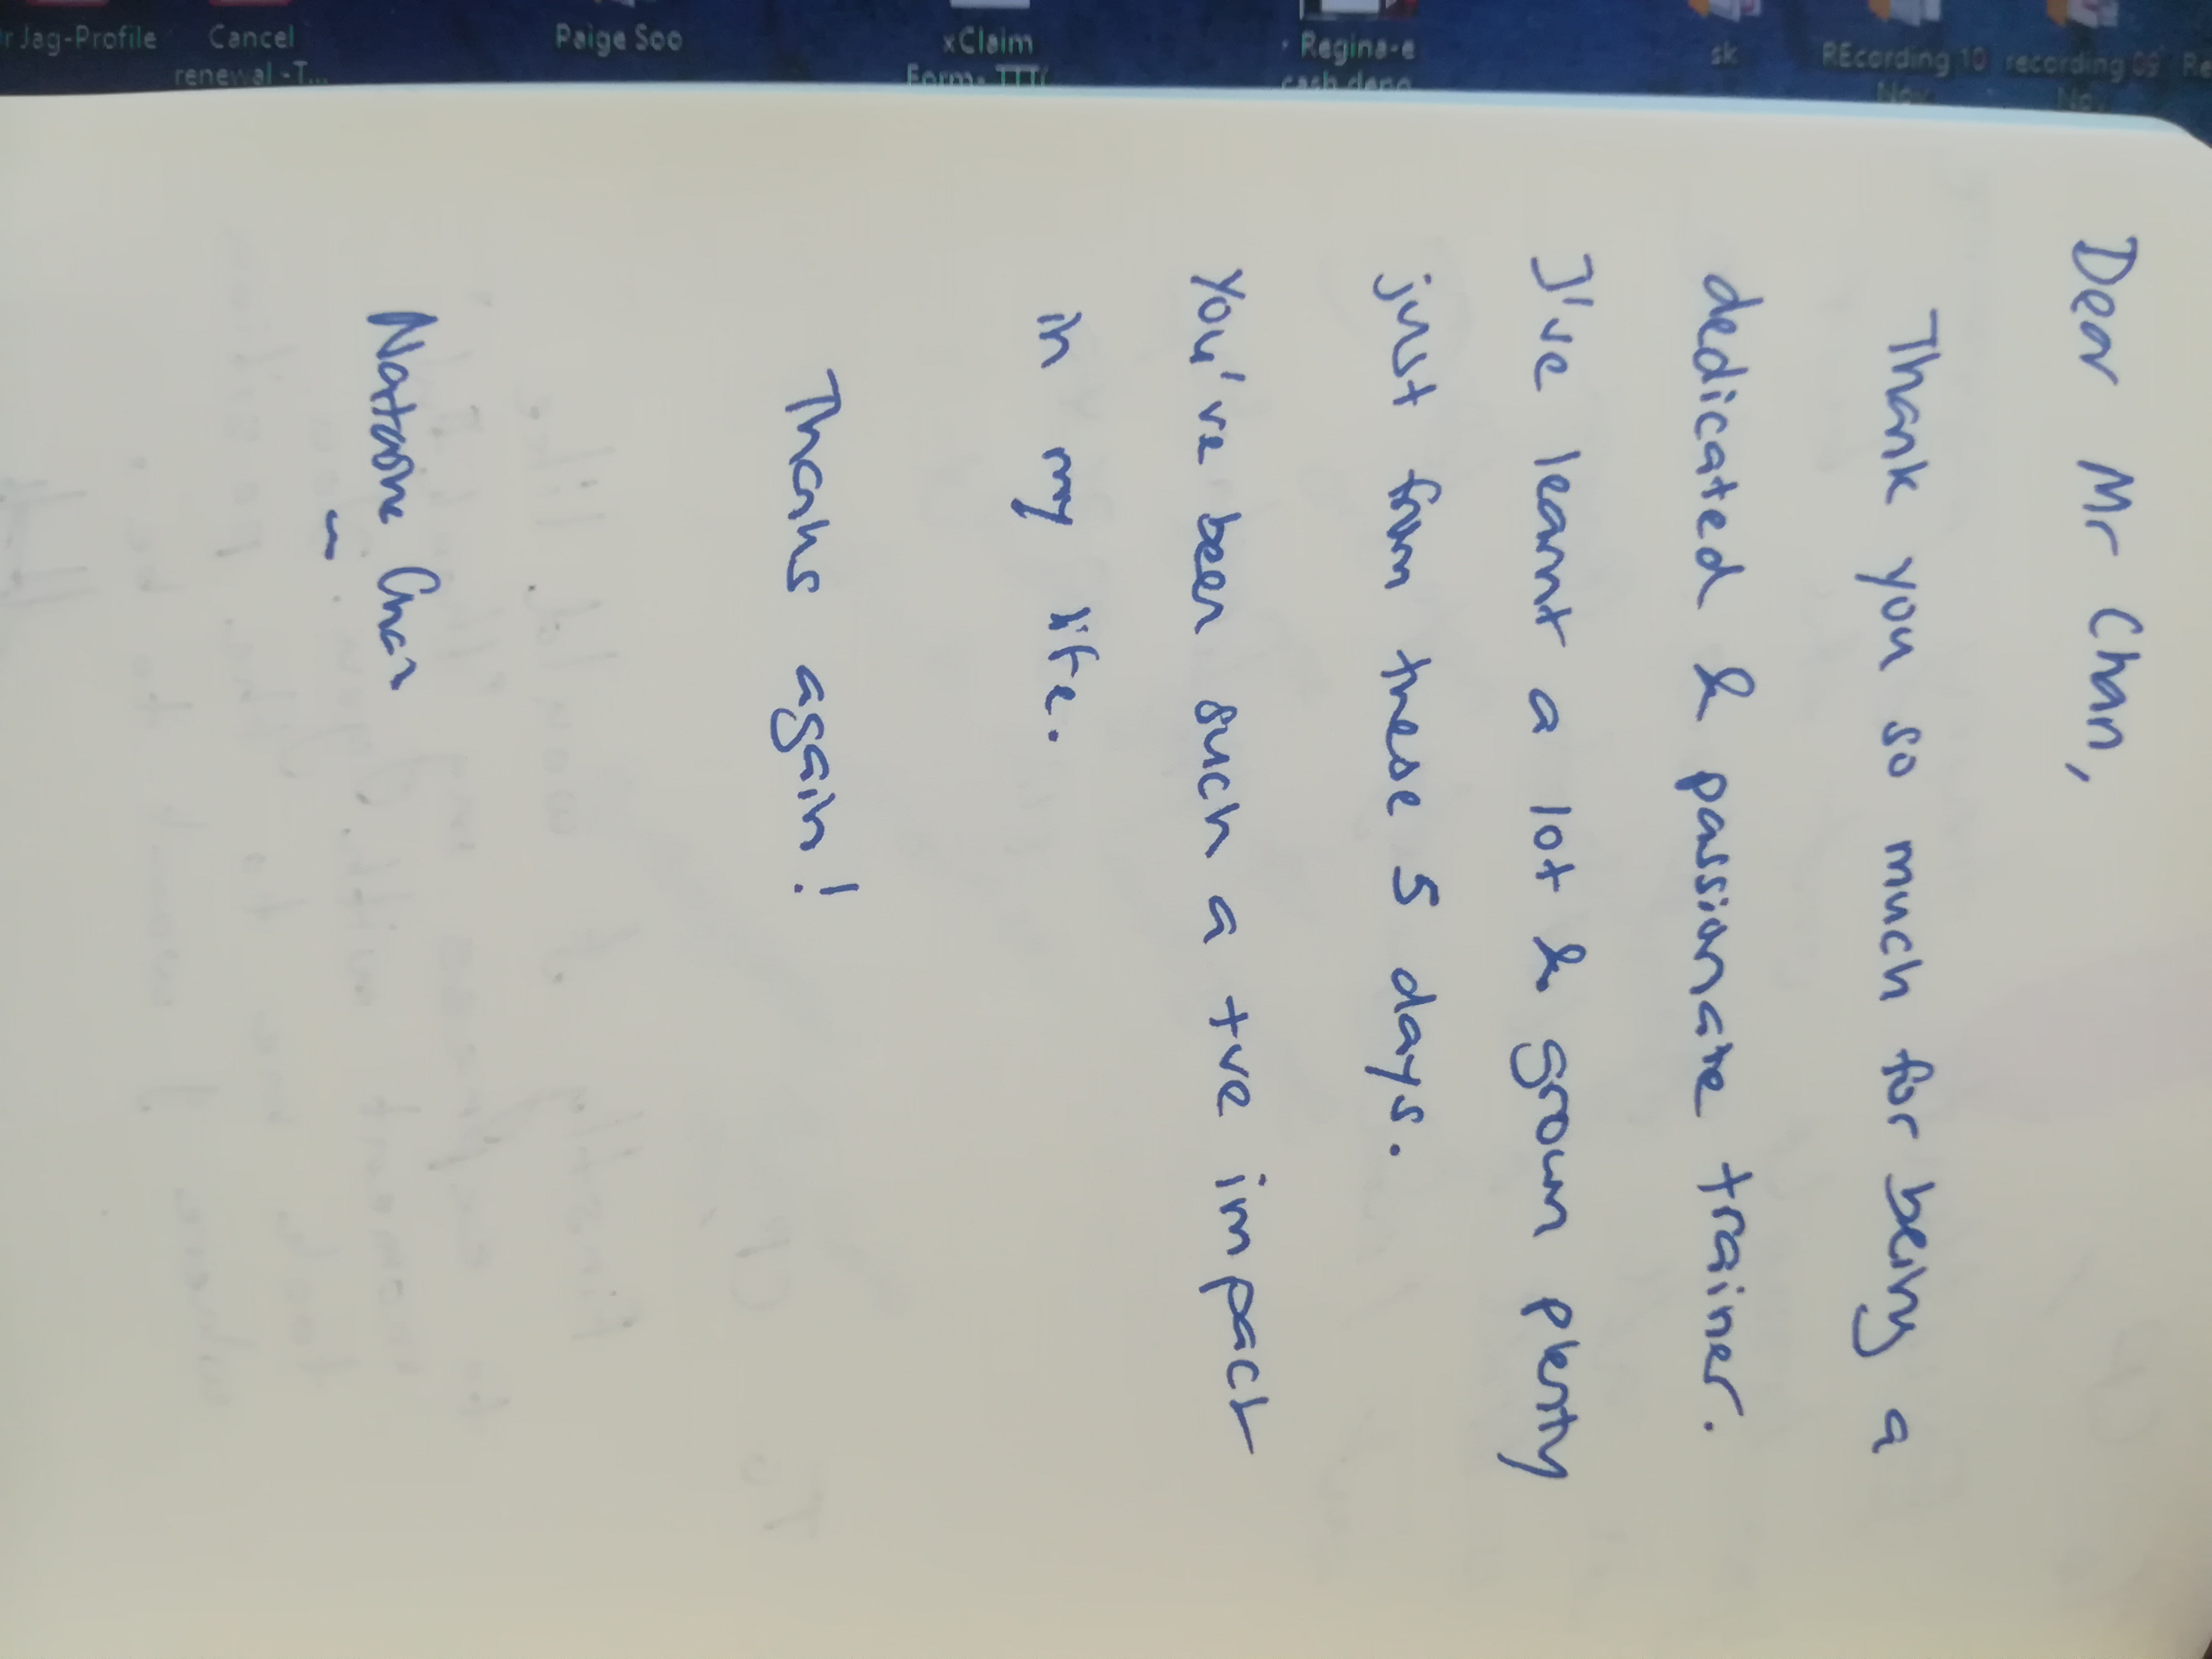 r Jag-Profile
Cancel
renewal -T...
Paige Soo
xClaim
Form- TTT(
Regina-e
cash depo
sk
REcording 10
Nov
recording 09
Nov
Re
Dear Mr Chan,
Thank you so much for being a
dedicated & passionate trainer.
I've learnt a lot & grown plenty
just from these 5 days.
You've been such a +ve impact
in my life.
Thanks again!
Chan